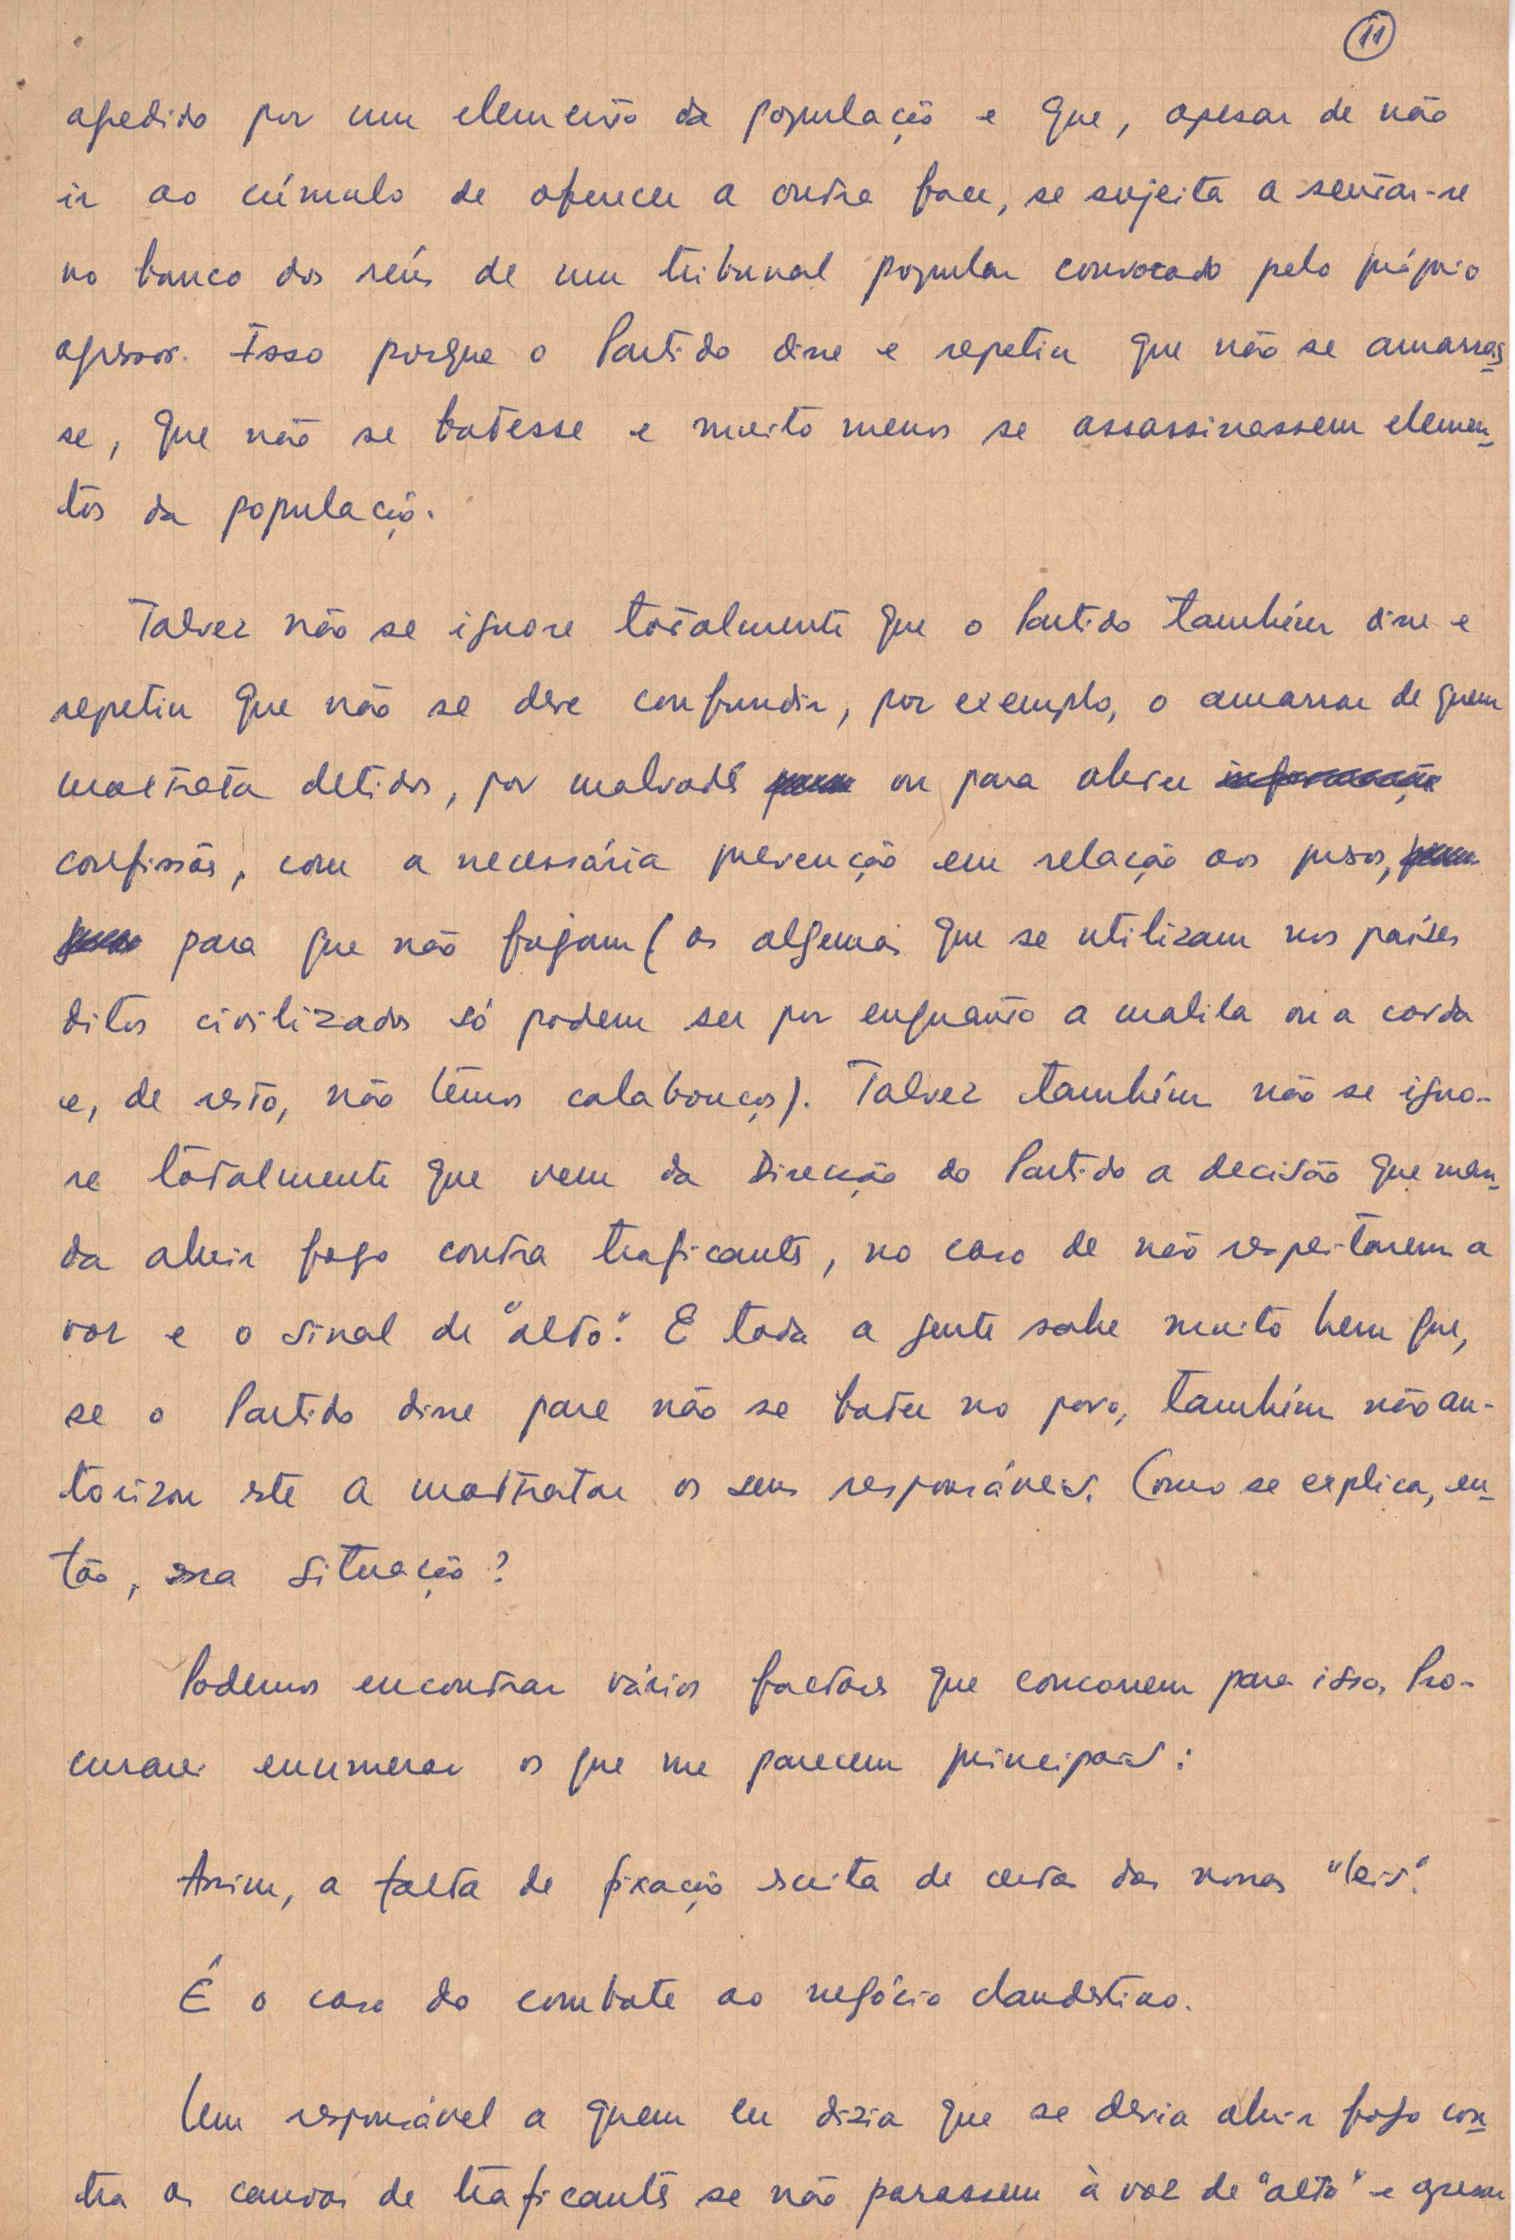 11
agredido por um elemento da população e que, apesar de não
ir ao cúmulo de oferecer a outra face, se sujeita a sentar-se
no banco dos réus de um tribunal popular convocado pelo próprio
agressor. Isso porque o Partido disse e repetiu que não se amarras
se, que não se batesse e muito menos se assassinassem elemen-
tos da população.
Talvez não se ignore totalmente que o Partido também disse e
repetiu que não se deve confundir, por exemplo, o amarrar de quem
maltrata detidos, por malvadês ou para obter
confissões, com a necessária prevenção em relação aos presos,
para que não fujam (as algemas que se utilizam nos países
ditos civilizados só podem ser por enquanto a malila ou a corda
e, de resto, não têmos calabouços). Talvez também não se igno-
re totalmente que vem da Direcção do Partido a decisão que man-
da abrir fogo contra traficantes, no caso de não respeitarem a
voz e o sinal de "alto". E toda a gente sabe muito bem que,
se o Partido disse para não se bater no povo, também não au-
torizou este a maltratar os seus responsáveis. Como se explica, en-
tão, essa situação?
Podemos encontrar vários factores que concorrem para isso. Pro-
curarei enumerar os que me parecem principais:
Assim, a falta de fixação escrita de certas das nossas "leis".
É o caso do combate ao negócio clandestino.
Um responsável a quem eu dizia que se devia abrir fogo con-
tra as canoas de traficantes se não parassem à voz de "alto" e apesar